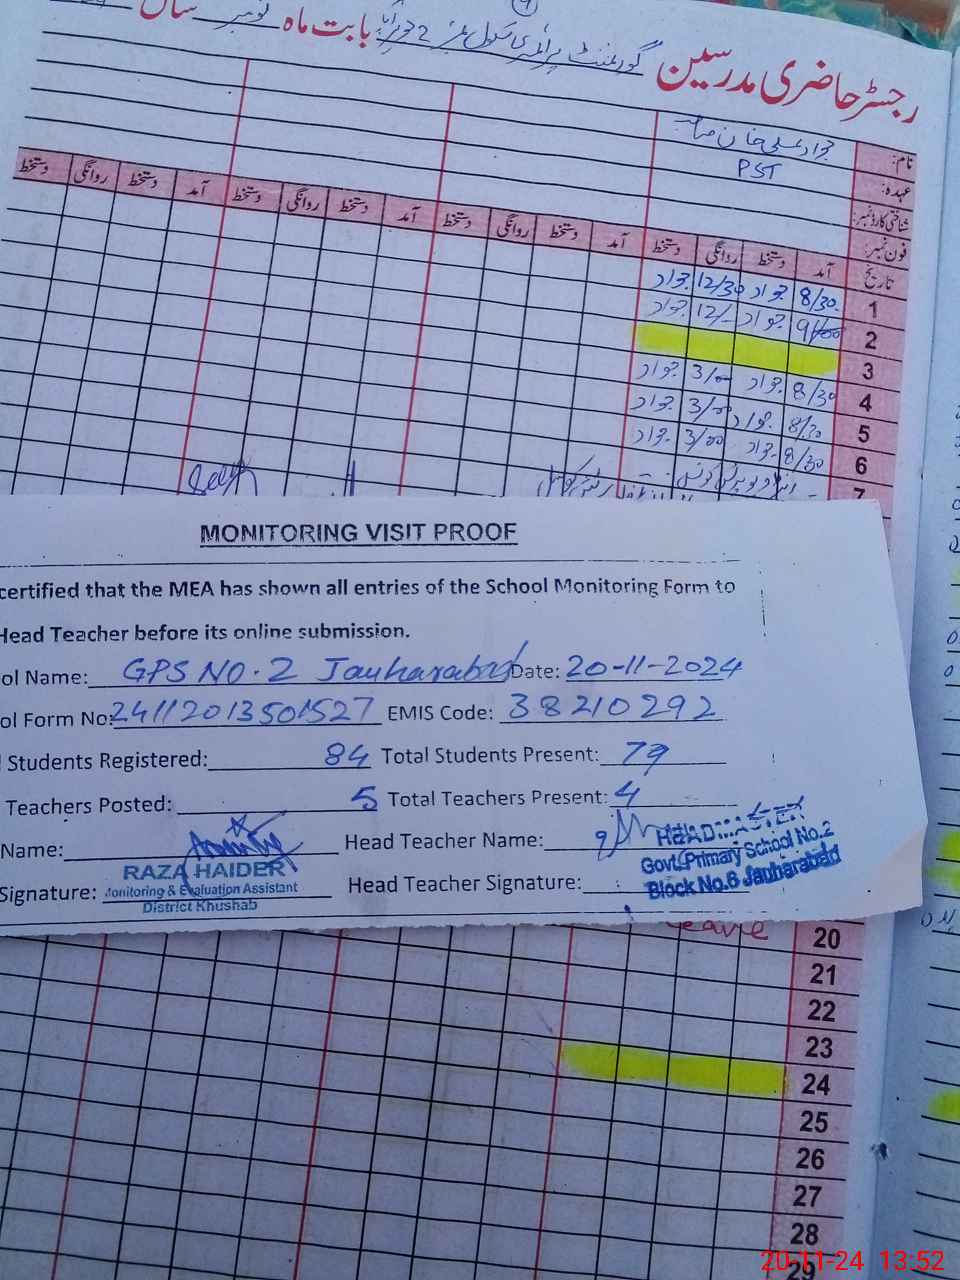 رجسٹر حاضری مدرسین گورنمنٹ پرائمری سکول نمبر 2 جوہرآباد بابت ماہ نومبر سال
نام: جواد علی خان صاحب
عہدہ: PST
شناختی کارڈ نمبر:
فون نمبر:
تاریخ آمد دستخط روانگی دستخط آمد دستخط روانگی دستخط آمد دستخط روانگی دستخط آمد دستخط روانگی دستخط
1 8/30 جواد 12/30 جواد
2 9/00 جواد 12/- جواد
3
4 8/30 جواد 3/00 جواد
5 8/30 جواد 3/00 جواد
6 8/30 جواد 3/00 جواد
7
MONITORING VISIT PROOF
certified that the MEA has shown all entries of the School Monitoring Form to
Head Teacher before its online submission.
ol Name: GPS NO.2 Jauharabad Date: 20-11-2024
ol Form No: 24112013501527 EMIS Code: 38210292
Students Registered: 84 Total Students Present: 79
Teachers Posted: 5 Total Teachers Present: 4
Name: Head Teacher Name:
HEADMASTER
RAZA HAIDER Govt. Primary School No.2
Signature: Monitoring & Evaluation Assistant Head Teacher Signature: Block No.6 Jauharabad
District Khushab
Leave
20
21
22
23
24
25
26
27
28
29
20-11-24 13:52